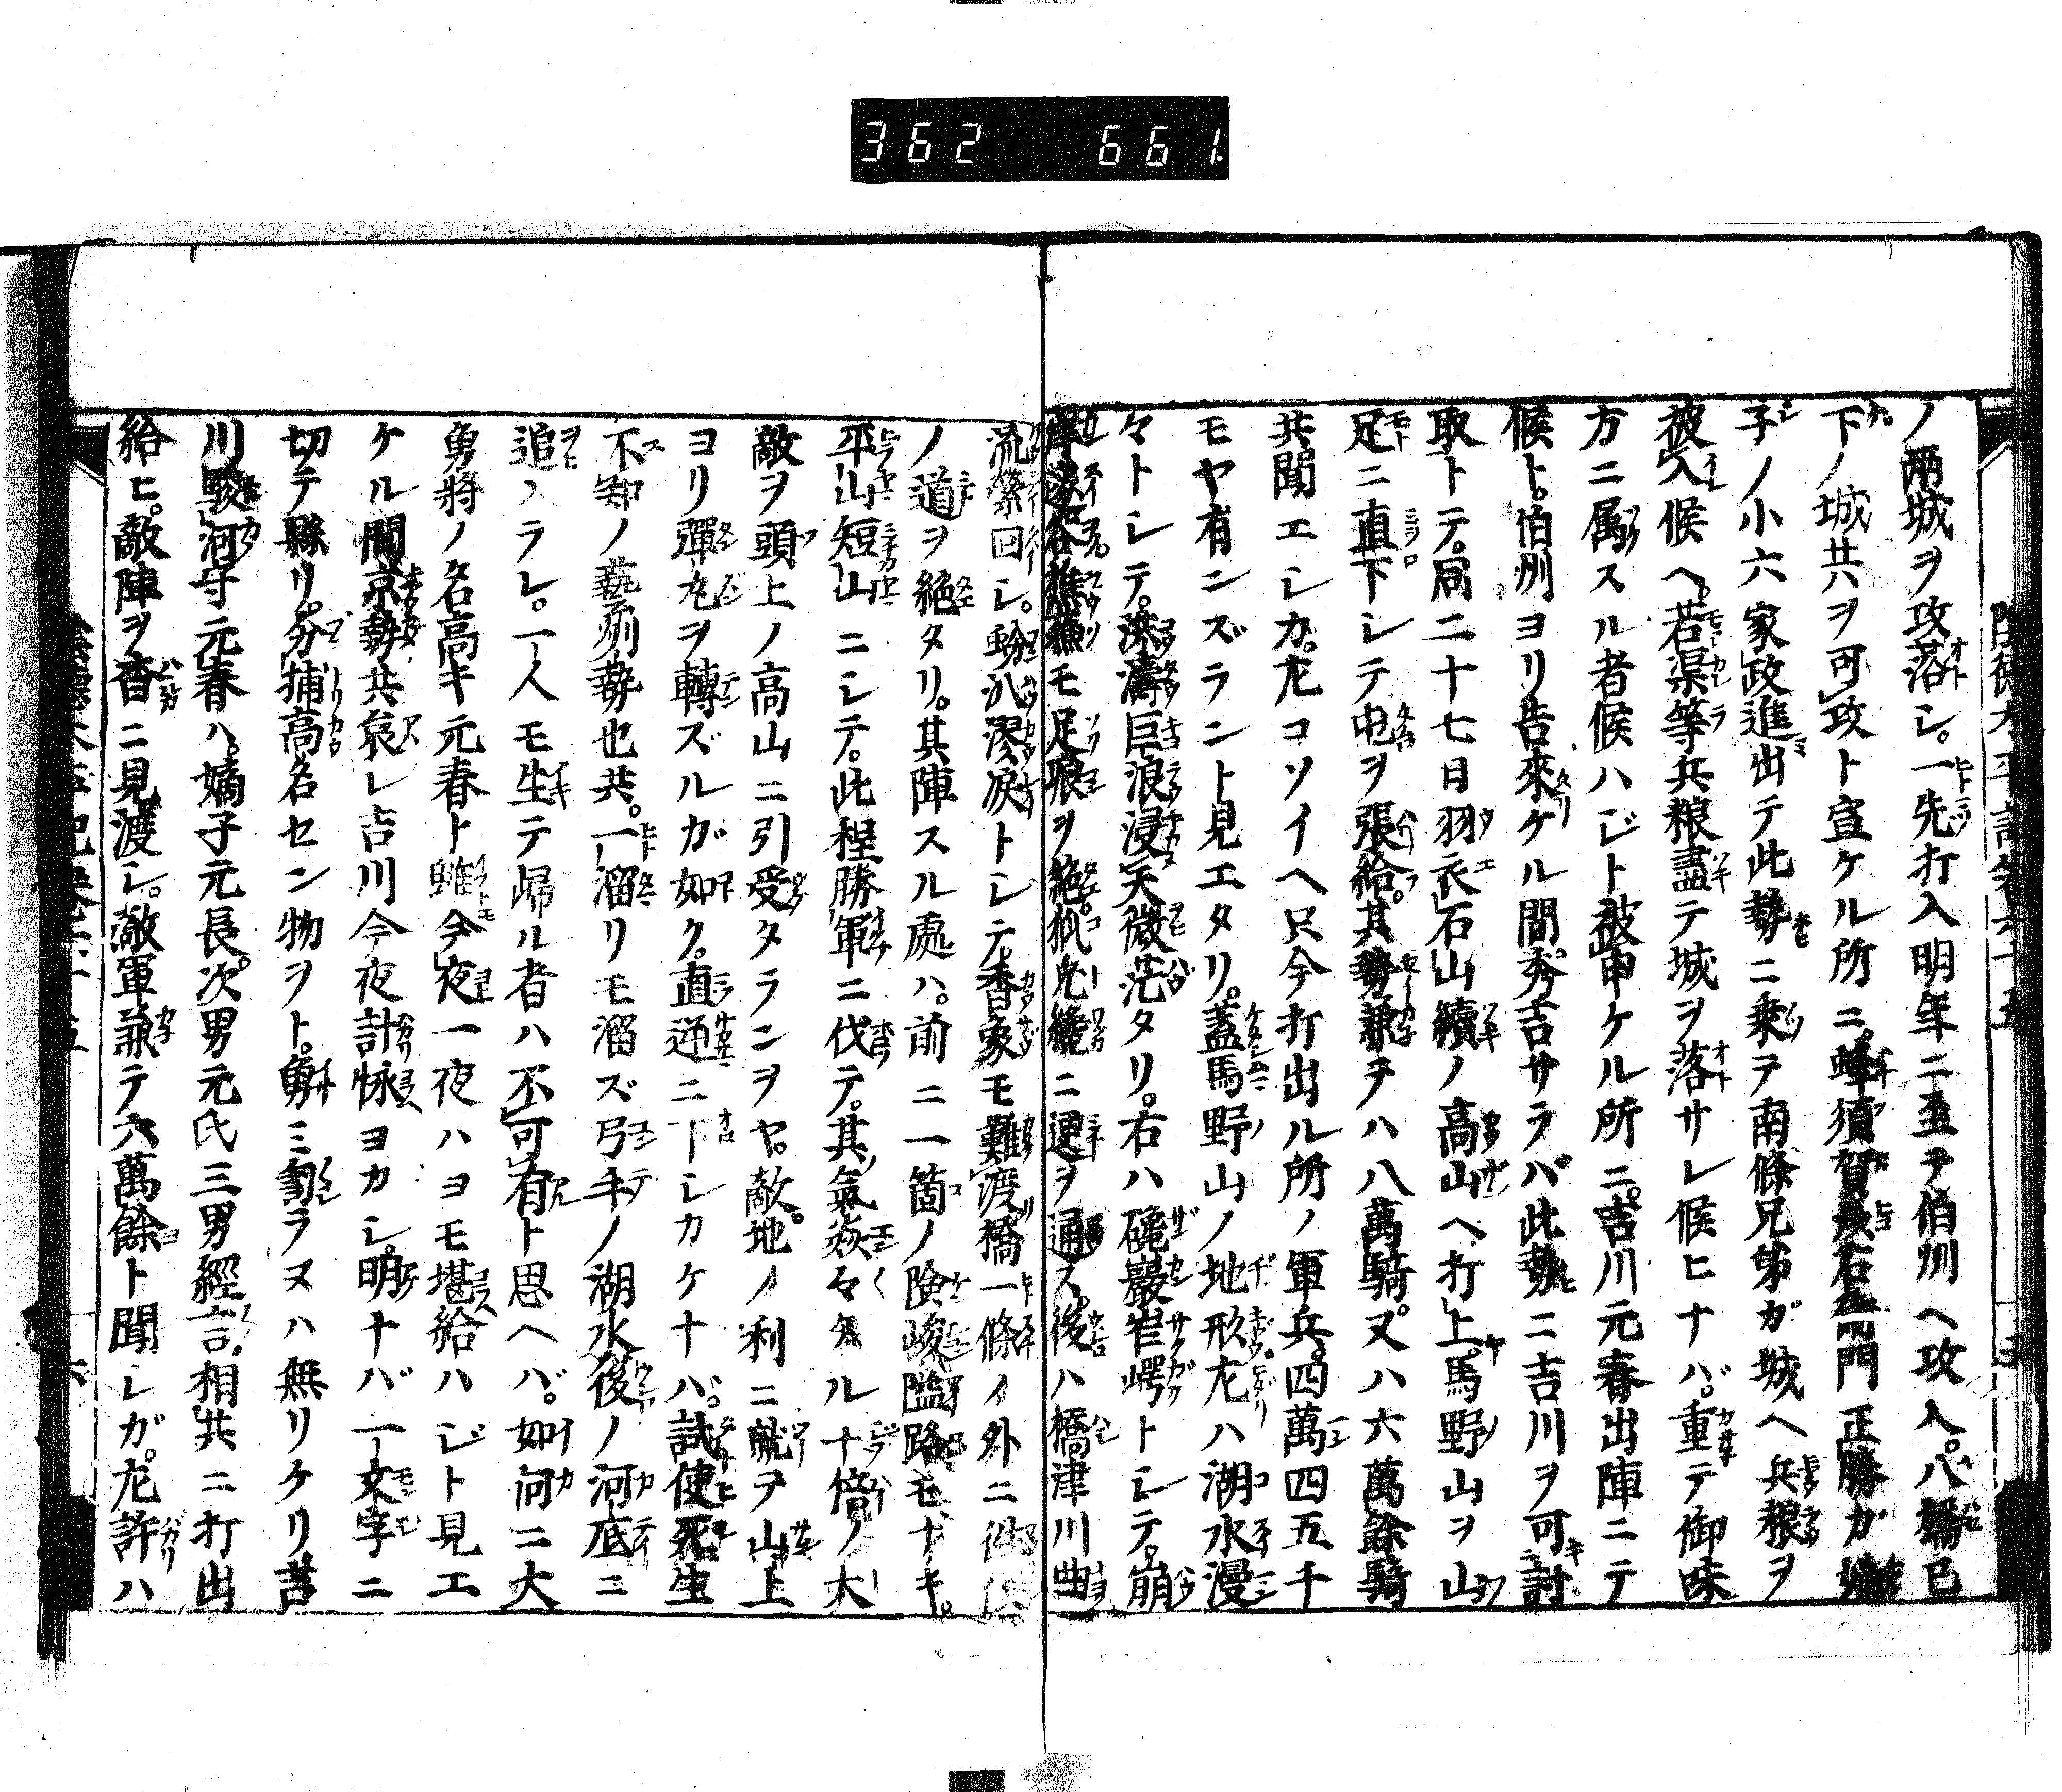 362 661.
ノ兩城ヲ攻落シ。一先打入明年ニ至テ伯州ヘ攻入。八橋已
下ノ城共ヲ可攻ト宣ケル所ニ。蜂須賀彦右衞門正勝ガ嫡
子ノ小六家政進出テ此勢ニ乗テ南條兄弟ガ城ヘ兵粮ヲ
被入候ヘ。若渠等兵粮盡テ城ヲ落サレ候ヒナハ゛。重テ御味
方ニ属スル者候ハジト被申ケル所ニ。吉川元春出陣ニテ
候ト。伯州ヨリ告來ケル間。秀吉サラバ此勢ニ吉川ヲ可討
取トテ。同二十七日羽衣石山續ノ高山ヘ打上。馬野山ヲ山
足ニ直下シテ屯ヲ張給。其勢兼ヲハ八萬騎。又ハ六萬餘騎
共聞エシカ。尤コソイヘ只今打出ル所ノ軍兵。四萬四五千
モヤ有ンズラント見エタリ。蓋馬野山ノ地形左ハ湖水漫
々トシテ。洪濤巨浪浸天微茫タリ。右ハ磯巖崔崿トシテ。崩
岸遂谷樵漁モ足痕ヲ絶。狐兎纔ニ逕ヲ通ス。後ハ橋津川曲
流縈回シ。
トシテ。香象モ難渡橋一條ノ外ニ
ノ道ヲ絶タリ。其陣スル處ハ。前ニ一箇ノ險峻隘路モナキ。
平山短山ニシテ。此程勝軍ニ伐テ。其氣焱々タル十倍ノ大
敵ヲ頭上ノ高山ニ引受タランヲヤ。敵地ノ利ニ就ヲ山上
ヨリ彈丸ヲ轉ズルガ如ク。直逆ニ下シカケナハ゛。試使死生
不知ノ藝列勢也共。一溜リモ溜ズ弓手ノ湖水後ノ河底ニ
追ノラレ。一人モ生テ帰ル者ハ不可有ト思ヘバ。如何ニ大
勇將ノ名高キ元春ト雖今夜一夜ハヨモ堪給ハジト見エ
ケル間京勢共哀レ吉川今夜計怺ヨカシ。明ナバ一文字ニ
切テ縣リ。分捕高名セン物ヲト。勇ミ訇ラヌハ無リケリ吉
川駿河守元春ハ。嫡子元長。次男元氏三男經言。相共ニ打出
給ヒ。敵陣ヲ杳ニ見渡シ。敵軍兼テ六萬餘ト聞シガ。左許ハ
六